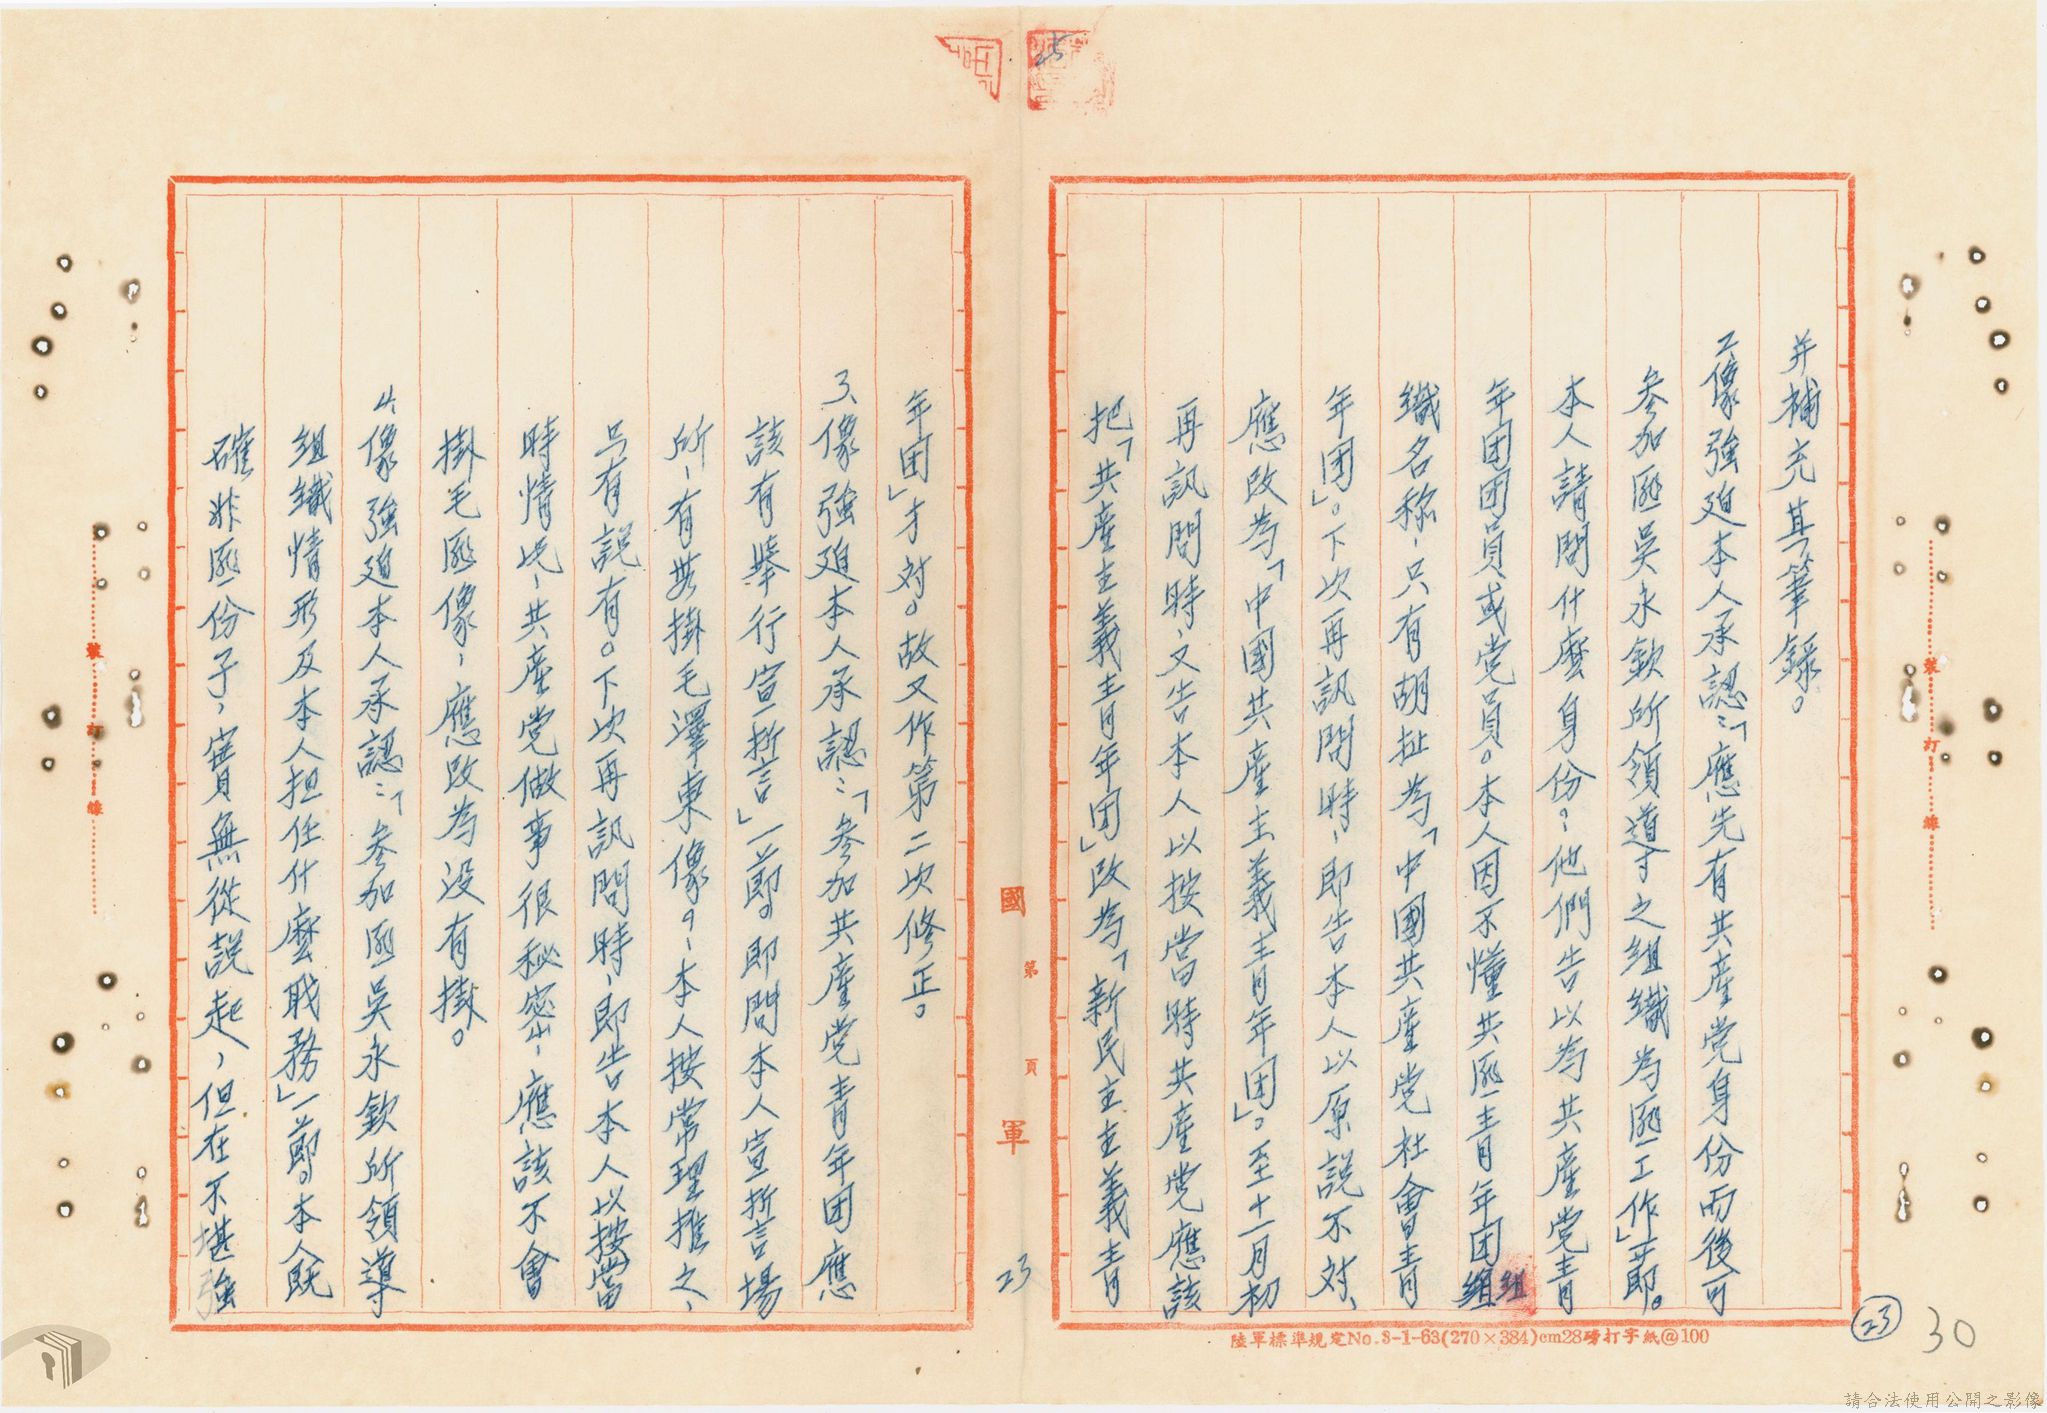 并補充其筆錄。
2.像強廹本人承認:「應先有共產党身份而後可
參加匪吳永欽所領導之組織為匪工作」一節。
本人請問什麼身份?他們告以為共產党青
年团团員或党員。本人因不懂共匪青年团組
織名称,只有胡扯為「中國共產党社會青
年团」。下次再訊問時,即告本人以原說不对、
應改為「中國共產主義青年团」。至十一月初
再訊問時,又告本人以按當時共產党應該
把「共產主義青年团」改為「新民主主義青
年团」才对。故又作第二次修正。
3、像強廹本人承認:「參加共產党青年团應
該有舉行宣誓」一節。即問本人宣誓場
所,有無掛毛澤東像?,本人按常理推之、
只有說有。下次再訊問時,即告本人以按當
時情况,共產党做事很秘密,應該不會
掛毛匪像,應改為没有掛。
4、像強廹本人承認:「參加匪吳永欽所領導
組織情形及本人担任什麼戝務」一節。本人既
確非匪份子,實無從說起,但在不堪強
國軍
第 頁
23
25
裝訂線
裝訂線
陸軍標準規定No.3-1-63(270×384)cm28磅打字紙@100
23
30
請合法使用公開之影像